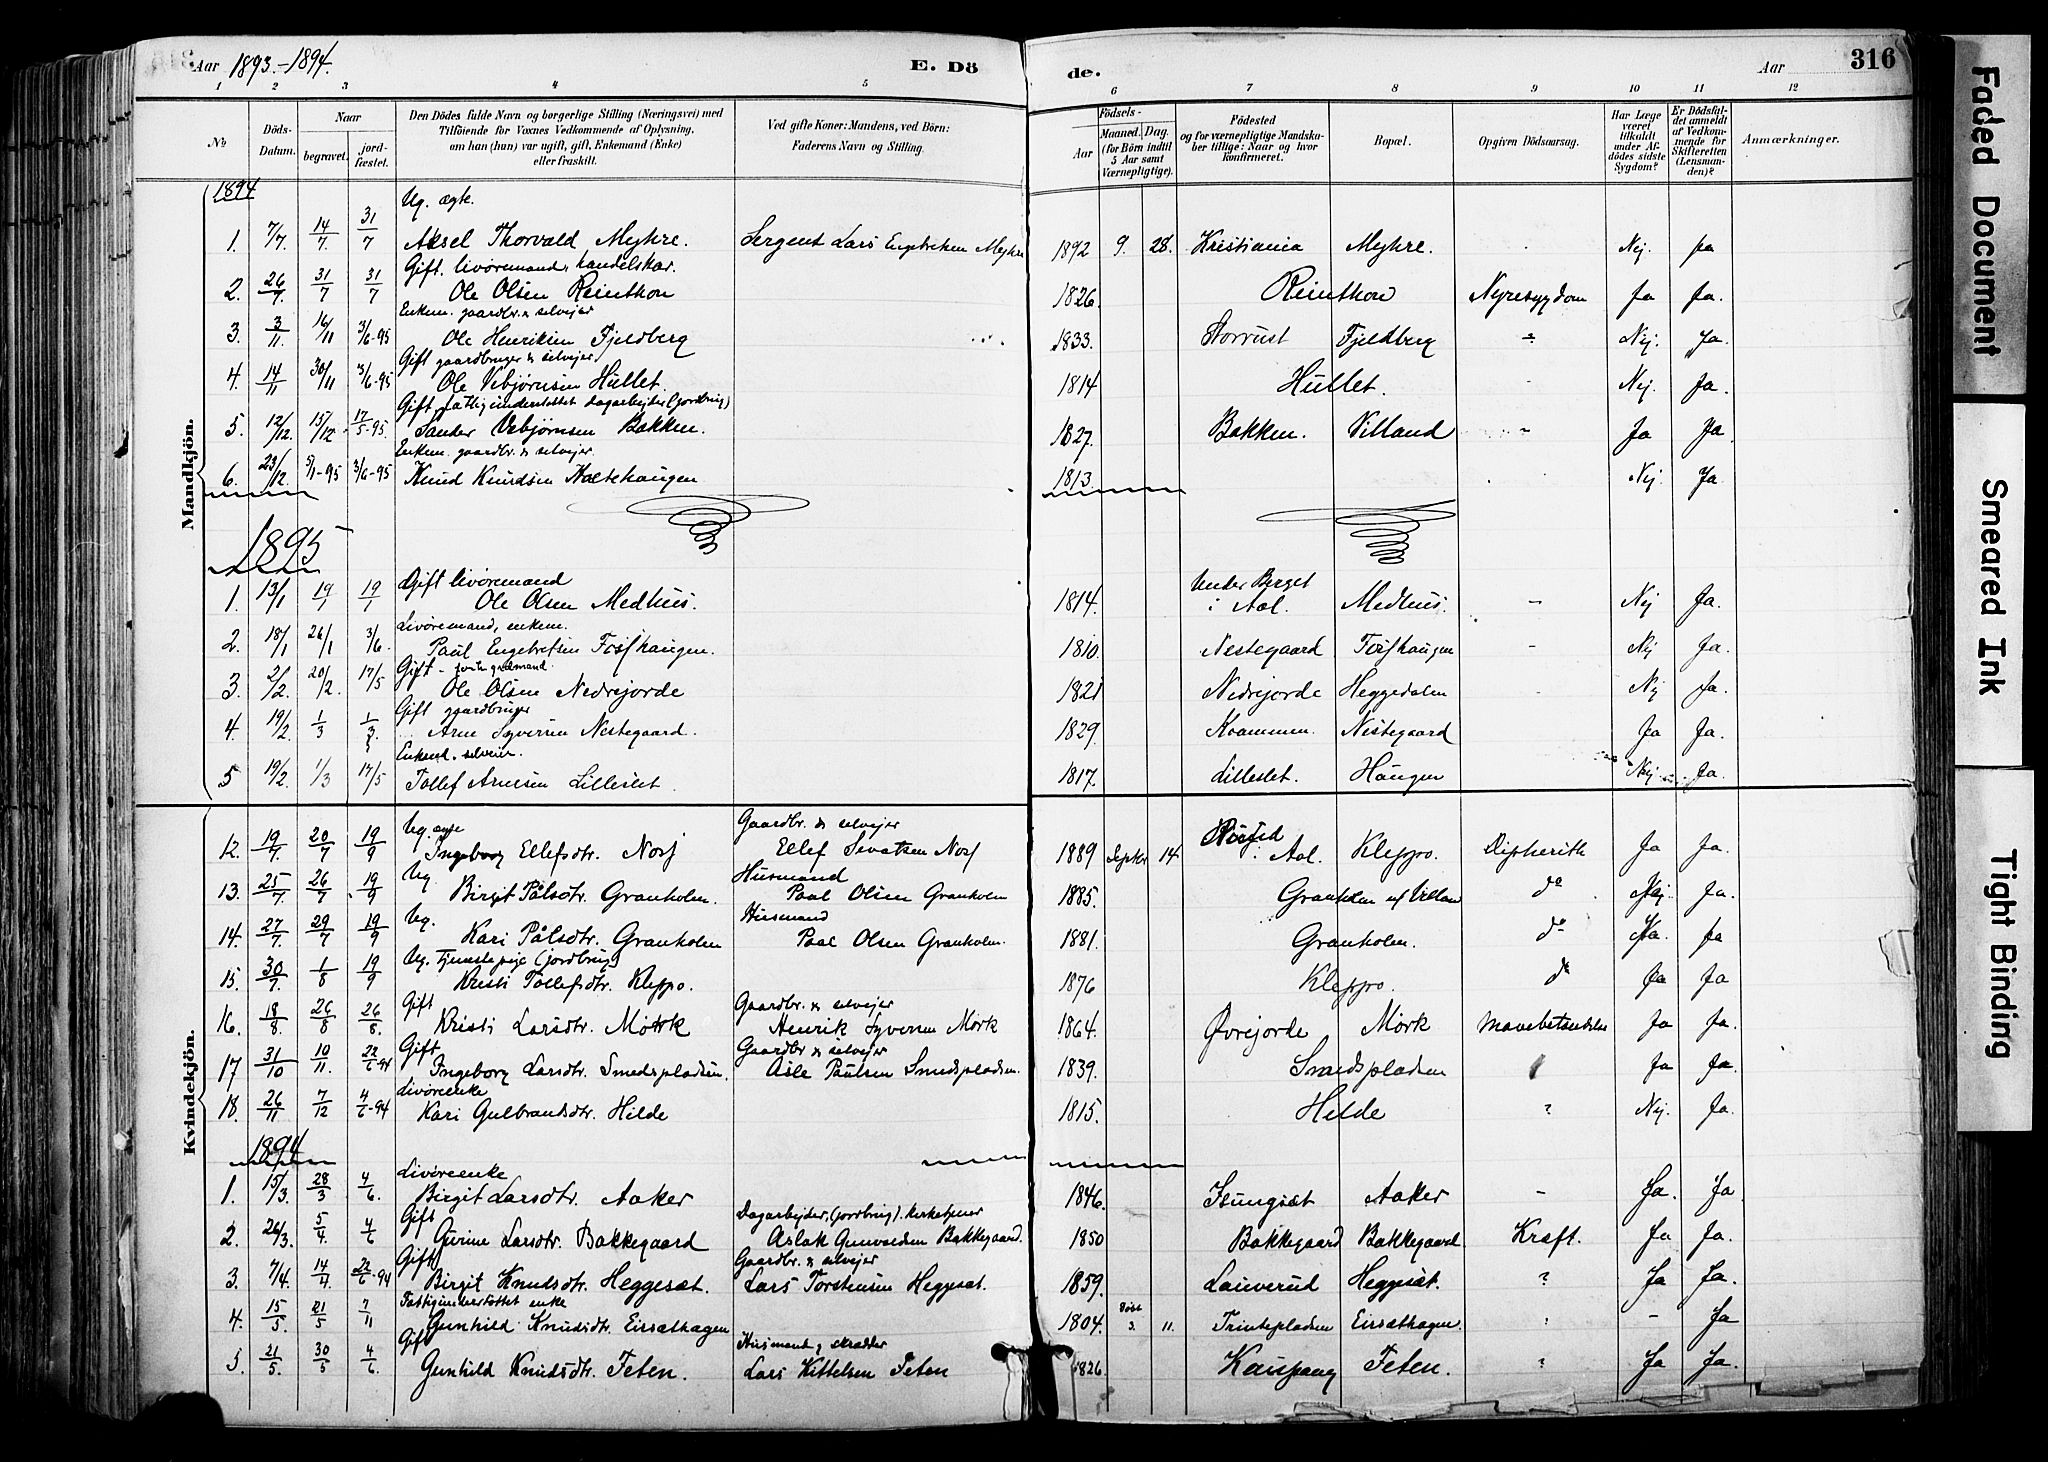 Aar 1893.-1894.
E. Dö
de.
Aar
316
1 2 3 4 5 6 7 8 9 10 11 12
No
Döds-Datum.
Naar
begravet.
jord-fæstet.
Den Dödes fulde Navn og borgerlige Stilling (Næringsvei) med
Tilföiende for Voxnes Vedkommende af Oplysning,
om han (hun) var ugift, gift, Enkemand (Enke)
eller fraskilt.
Ved gifte Koner: Mandens, ved Börn:
Faderens Navn og Stilling.
Födsels-
Aar
Maaned. Dag.
(for Börn indtil
5 Aar samt
Værnepligtige).
Födested
og for værnepligtige Mandska-
ber tillige: Naar og hvor
konfirmeret.
Bopæl.
Opgiven Dödsaarsag.
Har Læge
været
tilkaldt
under Af-
dödes sidste
Sygdom?
Er Dödsfal-
det anmeldt
af Vedkom-
mende for
Skifteretten
(Lensman-
den)?
Anmærkninger.
Mandkjön.
1894
Ug. ægte.
1. 7/7. 14/7 31/7 Aksel Thorvald Myhre. Sergent Lars Engebretsen Myhre 1892 9. 28. Kristiania Myhre. Nej. ja
Gift. livøremand, handelskar.
2. 26/7. 31/7 31/7 Ole Olsen Reinton 1826. Reinton Nyresygdom Ja Ja.
Enkem. gaardbr. & selvejer
3. 3/11. 16/11 3/6-95 Ole Henriksen Fjeldberg 1833. Torrust Fjeldberg ? Nej. Ja.
Gift gaardbruger & selvejer
4. 14/11 30/11 3/6-95 Ole Vebjørnsen Hullet. 1814 Hullet. Nej. Ja.
Gift, fattigunderstøttet dagarbejder (jordbrug)
5. 12/12. 15/12 17/5-95. Sander Vebjørnsen Bakken. 1827. Bakken. Villand Ja Ja
Enkem. gaardbr. & selvejer.
6. 23/12. 5/1-95 3/6-95 Knud Knudsen Holtehaugen 1813. Nej. Ja.
1895
Gift livøremand
1. 13/1 19/1 19/1 Ole Olsen Medhus. 1814. Under Berget i Aal. Medhus. - Nej Ja.
Livøremand, enkem.
2. 18/1 26/1 3/6 Paul Engebretsen Fosshaugen. 1810. Nestegaard Fosshaugen - Nej Ja.
Gift -
3. 2/2. 20/2. 17/5 Ole Olsen Nedrejorde 1821 Nedrejorde Heggedalen Nej Ja.
Gift gaardbruger
4. 19/2. 1/3 1/3 Arne Syversen Nestegaard. 1829. Kvammen Nestegaard Ja Ja.
Enkem. selveier.
5 19/2. 1/3 17/5 Tollef Arnesen Lilleslet. 1817. Lilleslet. Haugen Nej. Ja.
Kvindekjön.
Ug. ægte
Gaardbr. & selvejer
12. 19/7. 20/7 19/9 Ingeborg Ellefsdtr. Noss Ellef Sevatsen Noss 1889 Septbr 14. i Aal. Kleppo. Dipherith Ja Ja.
Ug
Husmand
13. 25/7. 26/7 19/9 Birgit Pålsdtr. Granholm. Paal Olsen Granholm 1885. Granholm u/ Villand do Nej. Ja.
Ug.
Husmand
14. 27/7. 29/7 19/9 Kari Pålsdtr. Granholm Paal Olsen Granholm. 1881. Granholm. do Ja. Ja
Ug. Tjenestepige (jordbrug)
15. 30/7. 1/8 19/9 Kristi Tollefsdtr. Kleppo. 1876 Kleppo. do Ja Ja
Gift
Gaardbr. & selvejer
16. 18/8. 26/8 26/8. Kristi Larsdtr. Mørk Henrik Syversen Mørk 1864. Øvrejorde Mørk Mavebetændelse Ja Ja.
Gift
Gaardbr & selvejer
17 31/10 10/11. 22/6-94 Ingeborg Larsdtr. Smedspladsen. Asle Paulsen Smedspladsen. 1839. Smedspladsen Ja Ja.
Livøreenke
18. 26/11 7/12 4/6-94 Kari Gulbrandsdtr. Hilde 1815. Hilde ? Nej. Ja.
1894
Livøreenke
1. 15/3. 28/3 4/6. Birgit Larsdtr. Aaker 1846. Isungsæt Aaker - Ja. Ja
Gift
Dagarbejder, (jordbrug). kirketjener
2. 26/3. 5/4 4/6 Gurine Larsdtr. Bakkegaard Aslak Gunvaldsen Bakkegaard. 1850 Bakkegaard Bakkegaard Kræft. Ja Ja.
Gift
Gaardbr. & selvejer
3. 7/4. 14/4. 22/6-94 Birgit Knudsdtr. Heggesæt. Lars Torstensen Heggesæt. 1859. Lauverud Heggesæt. ? Ja Ja.
Fattigunderstøttet enke
4. 15/5. 21/5 7/11 Gunhild Knudsdtr. Eirsæthagen 1804. Født 3. 11. Trintepladsen Eirsæthagen. ? - Ja
Gift
Husmand, skrædder
5. 21/5. 30/5 4/6. Gunhild Knudsdtr. Feten. Lars Kittelsen Feten 1826. Kaupang Feten. ? Ja Ja.
Faded Document
Smeared Ink
Tight Binding